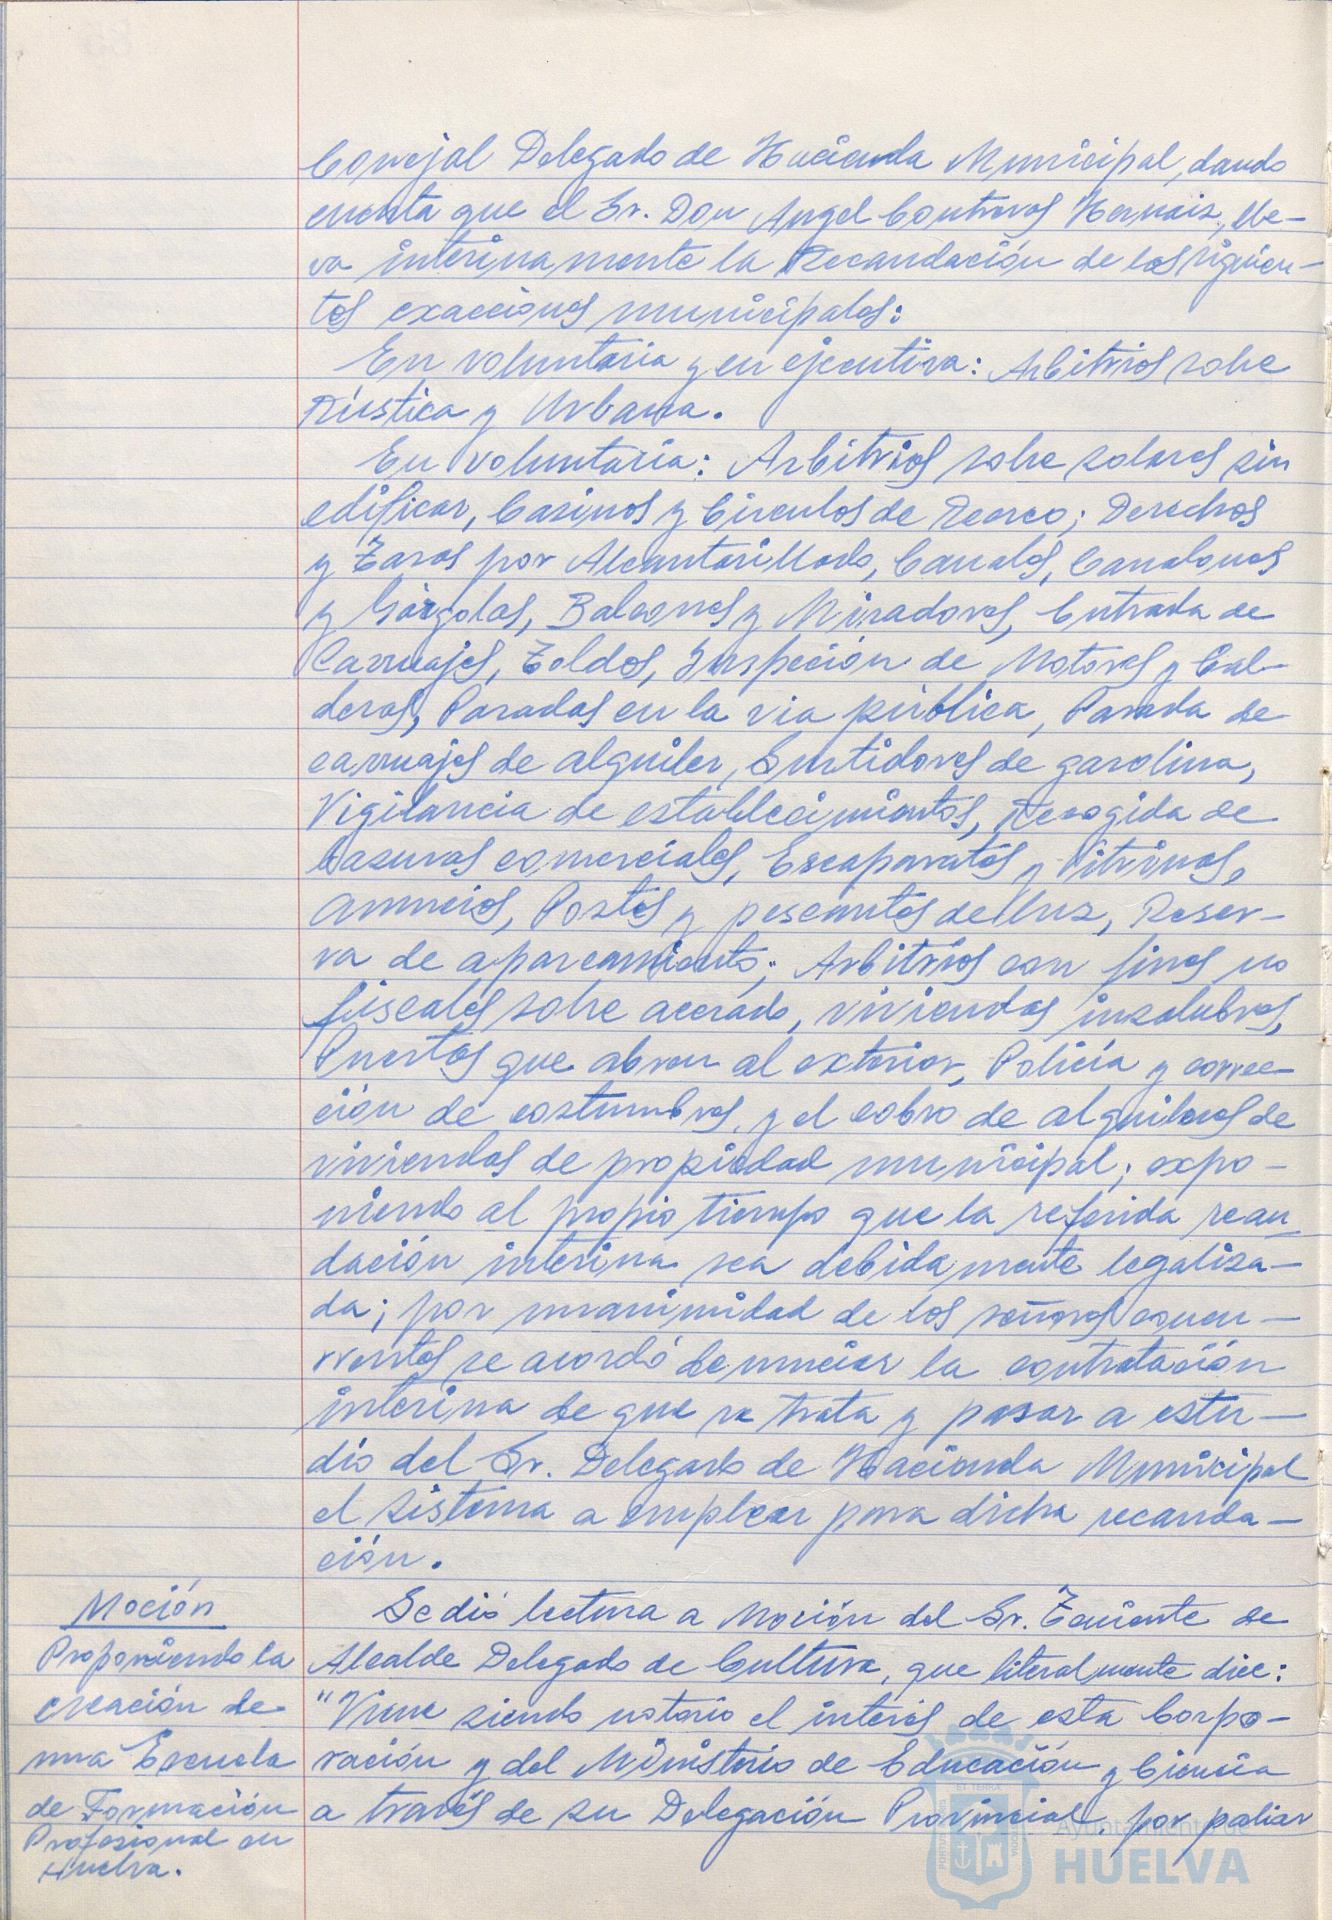 Concejal Delegado de Hacienda Municipal, dando
cuenta que el Sr. Don Angel Contreras Hernaiz, lle-
va interinamente la Recaudación de las siguien-
tes exacciones municipales:
En voluntaria y en ejecutiva: Arbitrios sobre
Rústica y Urbana.
En voluntaria: Arbitrios sobre solares sin
edificar, Casinos y Circulos de Recreo; Derechos
y Tasas por Alcantarillado, Canales, Canalones
y Gárgolas, Balcones y Miradores, Entrada de
Carruajes, Toldos, Inspección de Motores y Cal-
deras, Paradas en la via pública, Parada de
carruajes de alquiler, Surtidores de gasolina,
Vigilancia de establecimientos, Recogida de
basuras comerciales, Escaparates y Vitrinas,
Anuncios, Postes y pescantes de luz, Reser-
va de aparcamiento; Arbitrios con fines no
fiscales sobre acerado, viviendas insalubres,
Puertas que abren al exterior, Policía y correc-
ción de costumbres, y el cobro de alquileres de
viviendas de propiedad municipal; expo-
niendo al propio tiempo que la referida recau
dación interina sea debidamente legaliza-
da; por unanimidad de los señores concu-
rrentes se acordó denunciar la contratación
interina de que se trata y pasar a estu-
dio del Sr. Delegado de Hacienda Municipal
el sistema a emplear para dicha recauda-
ción.
Moción
Proponiendo la
creación de
una Escuela
de Formación
Profesional en
Huelva.
Se dió lectura a Moción del Sr. Teniente de
Alcalde Delegado de Cultura, que literalmente dice:
"Viene siendo notorio el interés de esta Corpo-
ración y del Ministerio de Educación y Ciencia
a través de su Delegación Provincial, por paliar
Ayuntamiento de
HUELVA